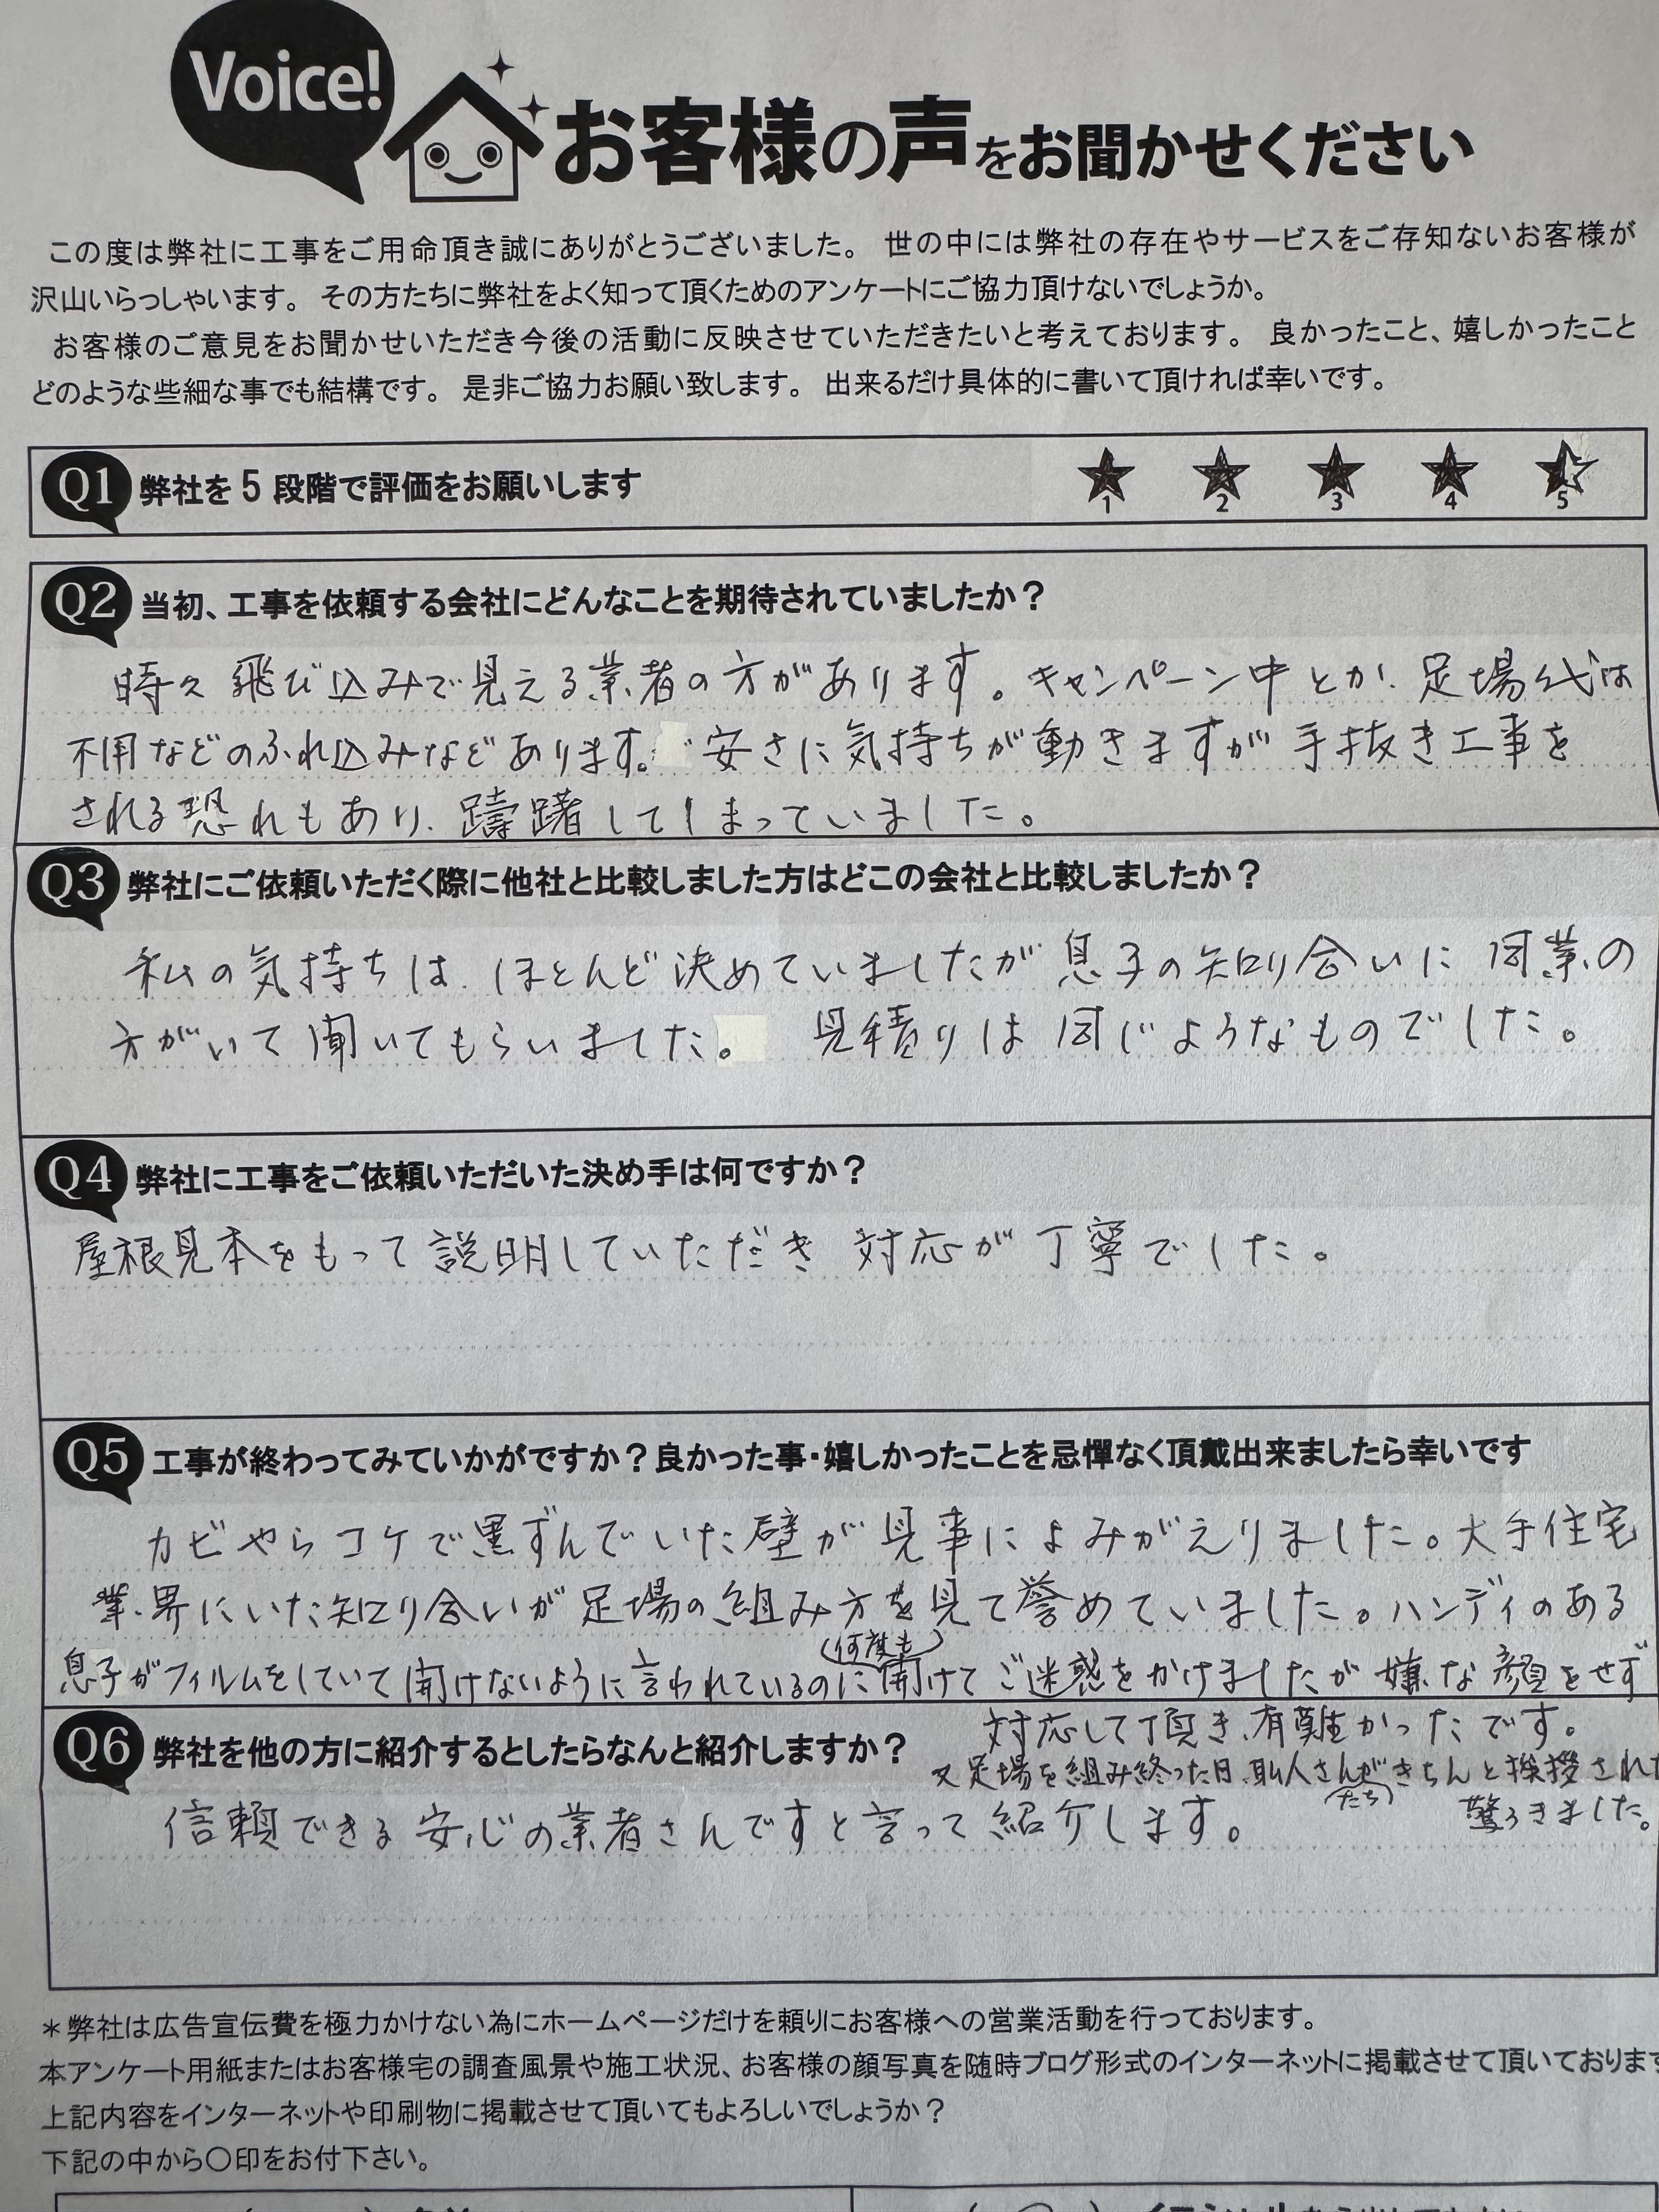 Voice!
お客様の声をお聞かせください
この度は弊社に工事をご用命頂き誠にありがとうございました。 世の中には弊社の存在やサービスをご存知ないお客様が
沢山いらっしゃいます。 その方たちに弊社をよく知って頂くためのアンケートにご協力頂けないでしょうか。
お客様のご意見をお聞かせいただき今後の活動に反映させていただきたいと考えております。 良かったこと、嬉しかったこと
どのような些細な事でも結構です。 是非ご協力お願い致します。 出来るだけ具体的に書いて頂ければ幸いです。
Q1 弊社を5段階で評価をお願いします ★1 ★2 ★3 ★4 ★5
Q2 当初、工事を依頼する会社にどんなことを期待されていましたか？
時々飛び込みで見える業者の方があります。キャンペーン中とか、足場代は
不用などのふれ込みなどあります。安さに気持ちが動きますが手抜き工事を
される恐れもあり、躊躇してしまっていました。
Q3 弊社にご依頼いただく際に他社と比較しました方はどこの会社と比較しましたか？
私の気持ちは、ほとんど決めていましたが息子の知り合いに同業の
方がいて聞いてもらいました。 見積りは同じようなものでした。
Q4 弊社に工事をご依頼いただいた決め手は何ですか？
屋根見本をもって説明していただき 対応が丁寧でした。
Q5 工事が終わってみていかがですか？良かった事・嬉しかったことを忌憚なく頂戴出来ましたら幸いです
カビやらコケで黒ずんでいた壁が見事によみがえりました。大手住宅
業界にいた知り合いが足場の組み方を見て誉めていました。ハンディのある
(何度も)
息子がフィルムをしていて開けないように言われているのに開けてご迷惑をかけましたが嫌な顔をせず
対応して頂き、有難かったです。
又足場を組み終った日、職人さんがきちんと挨拶され
(たち)
驚ろきました。
Q6 弊社を他の方に紹介するとしたらなんと紹介しますか？
信頼できる安心の業者さんですと言って紹介します。
＊弊社は広告宣伝費を極力かけない為にホームページだけを頼りにお客様への営業活動を行っております。
本アンケート用紙またはお客様宅の調査風景や施工状況、お客様の顔写真を随時ブログ形式のインターネットに掲載させて頂いております
上記内容をインターネットや印刷物に掲載させて頂いてもよろしいでしょうか？
下記の中から〇印をお付下さい。